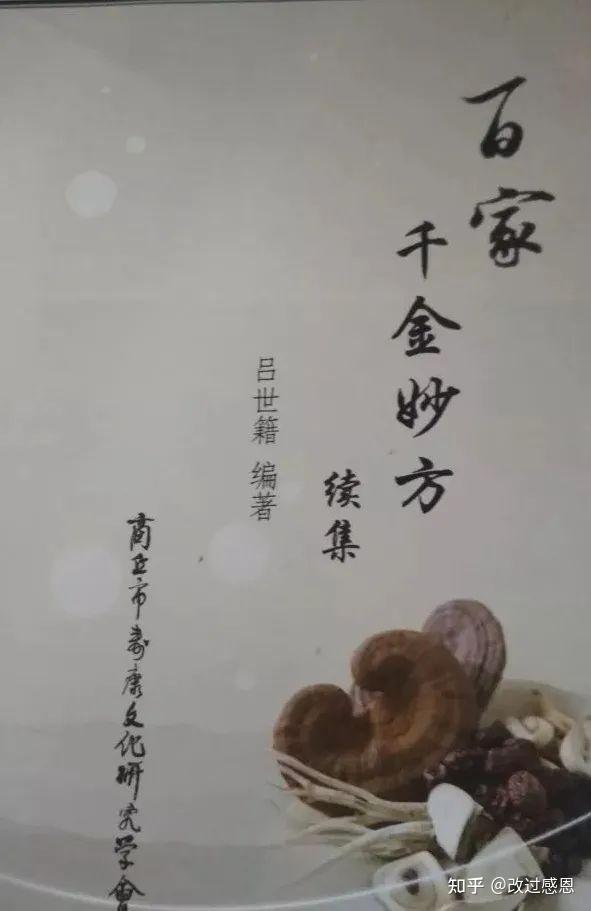 百家
千金妙方
续集
吕世籍 编著
商丘市寿康文化研究学會
知乎 @改过感恩